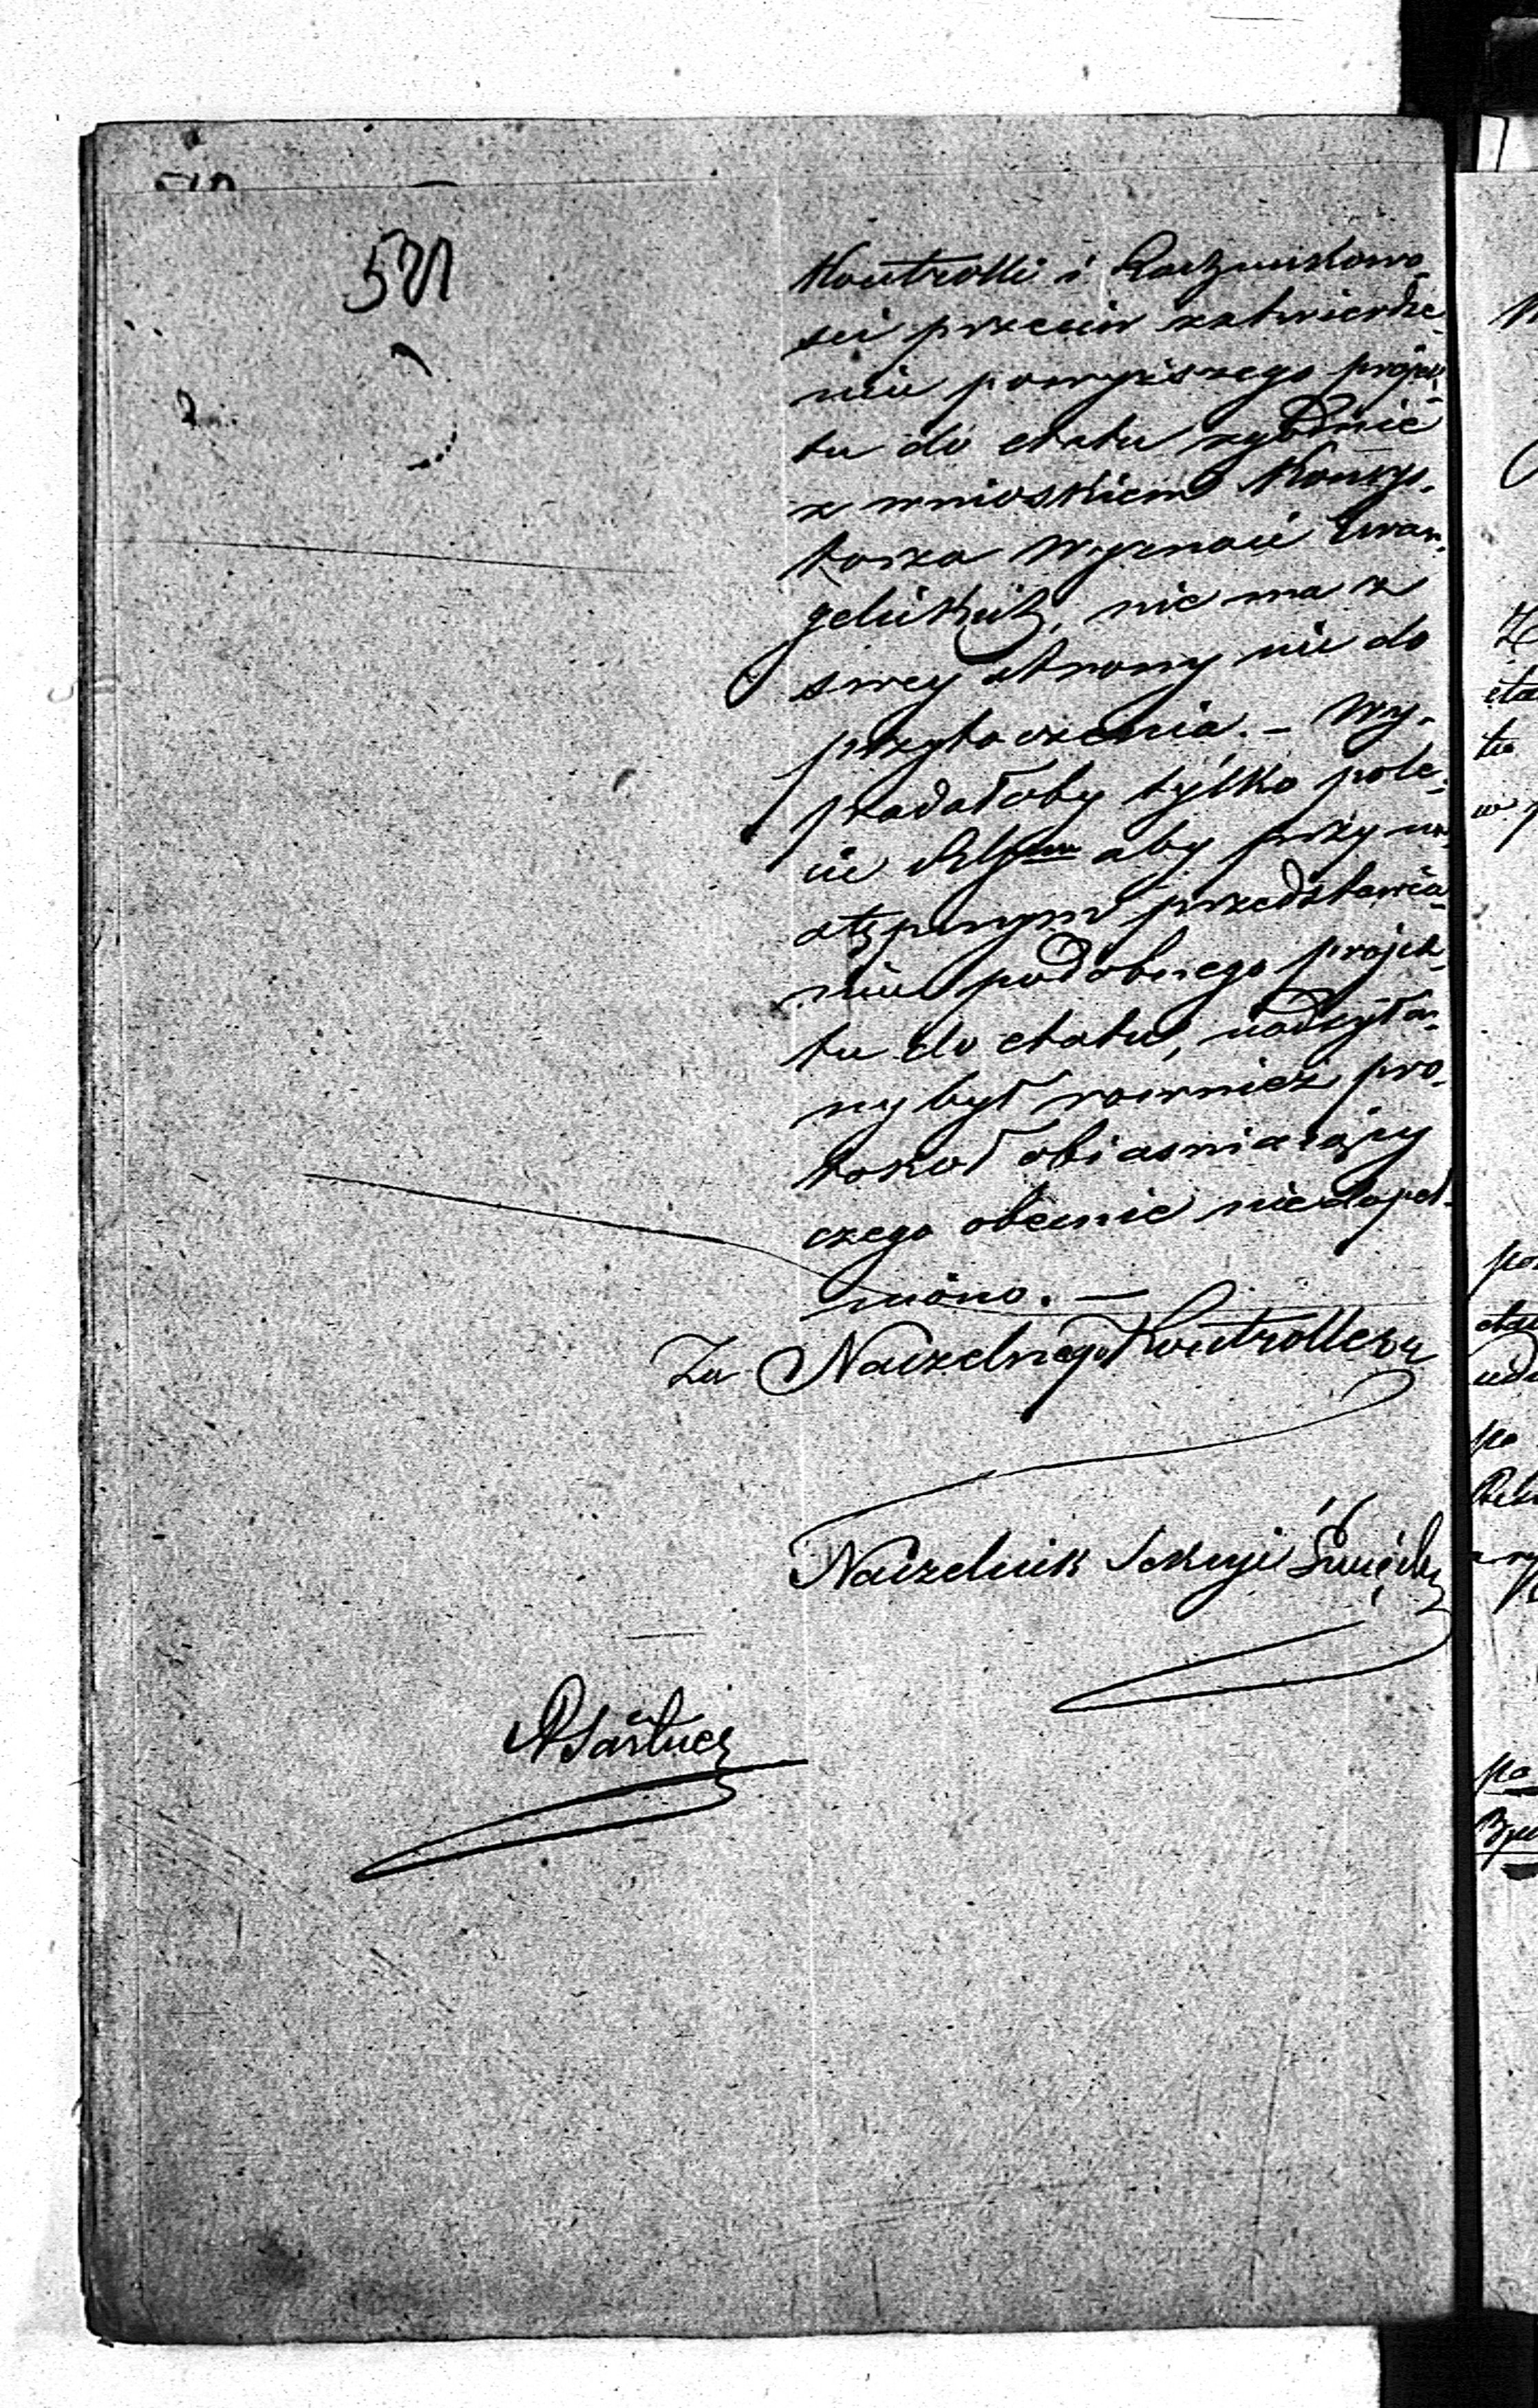 521
Kontrolli i Rachunkowo-
sci przeciw zatwierdze-
niu powyższego projek-
tu do etatu zgodnie
z wnioskiem Konsys-
torza Wyznań Ewan-
gelickich, nie ma z
swey strony nic do
przytoczenia. – Wy-
padałoby tylko pole-
cić aby przy na-
stępnym przedstawia-
niu podobnego projek-
tu do etatu, nadsyła-
ny był rownież pro-
tokoł obiasniaiący
czego obecnie niedopeł-
niono. –
Za Naczelnego Kontrollera
Naczelnik Sekcyi